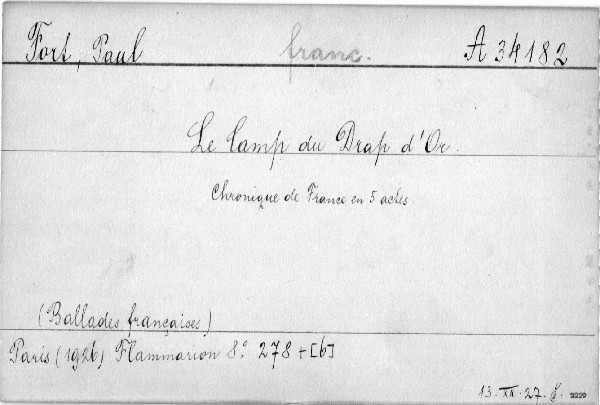 Fort, Paul franc. A 34182
Le Camp du Drap d'Or.
Chronique de France en 5 actes.
(Ballades françaises)
Paris (1926) Flammarion 8° 278 + [6]
13. XII. 27. 2229